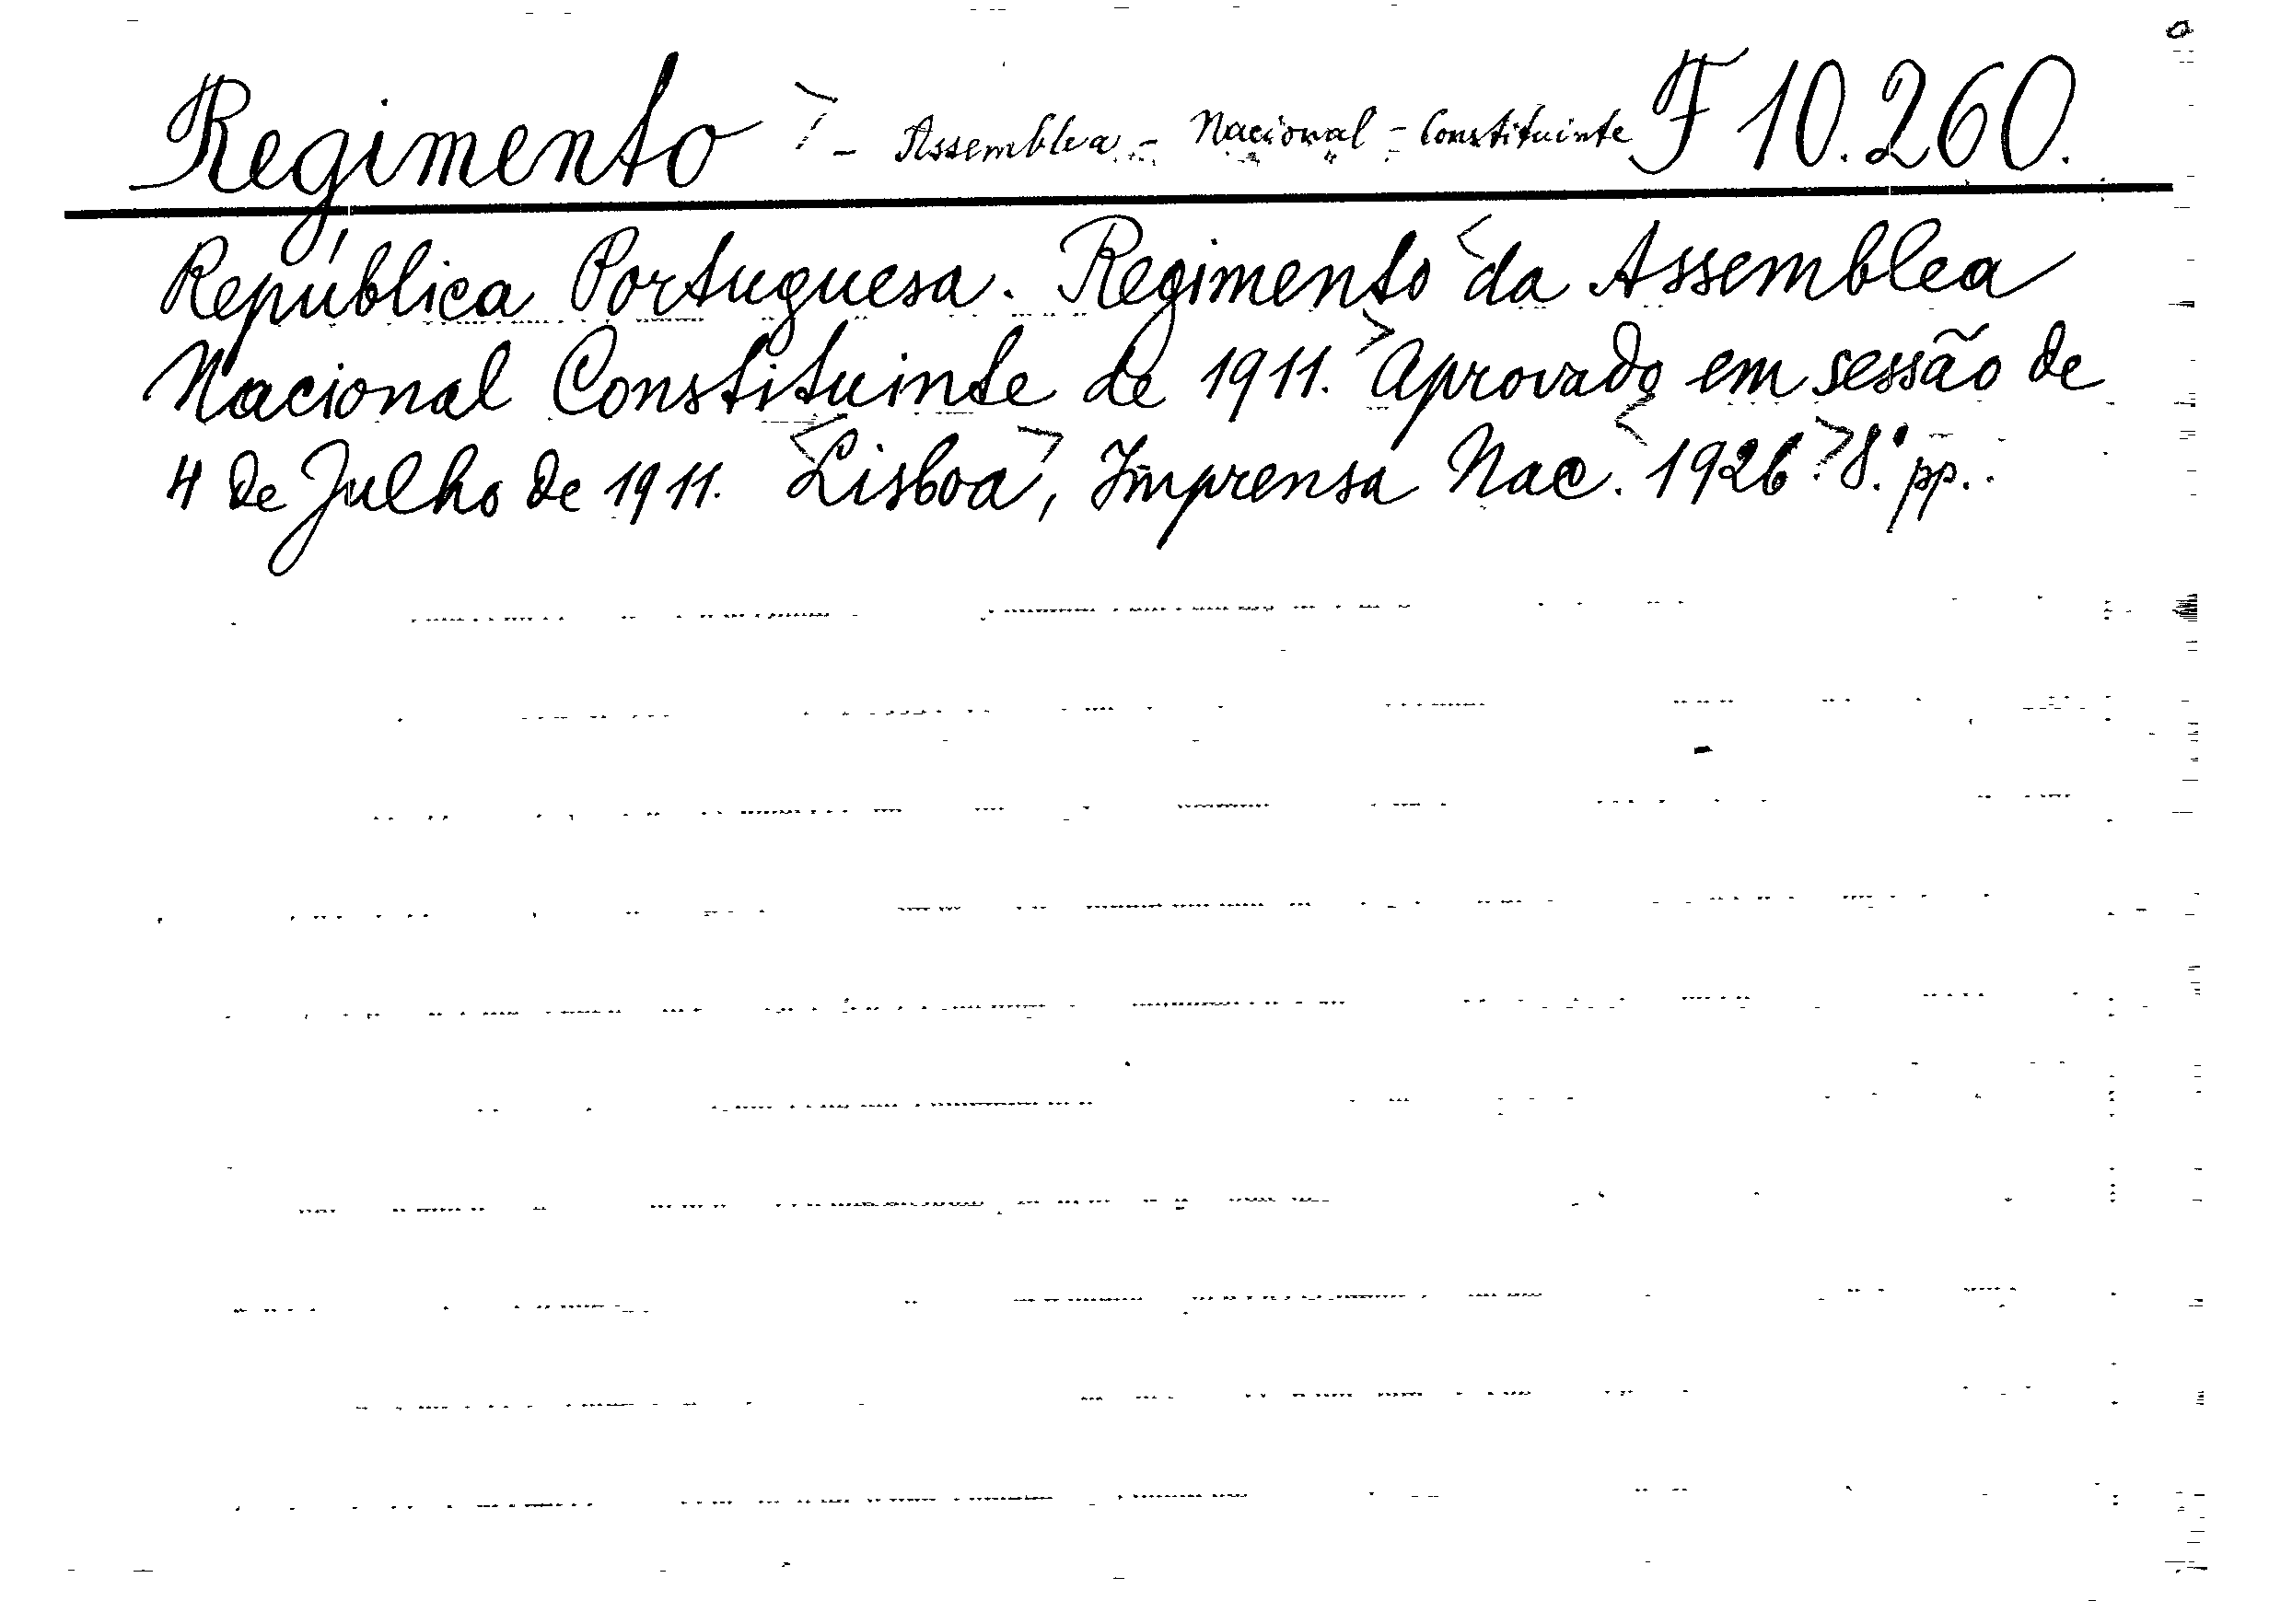 Regimento - Assemblea - Nacional - Constituinte F 10.260.
República Portuguesa. Regimento da Assemblea
Nacional Constituinte de 1911. Aprovado em sessão de
4 de Julho de 1911. Lisboa, Imprensa Nac. 1926. 8.º pp..